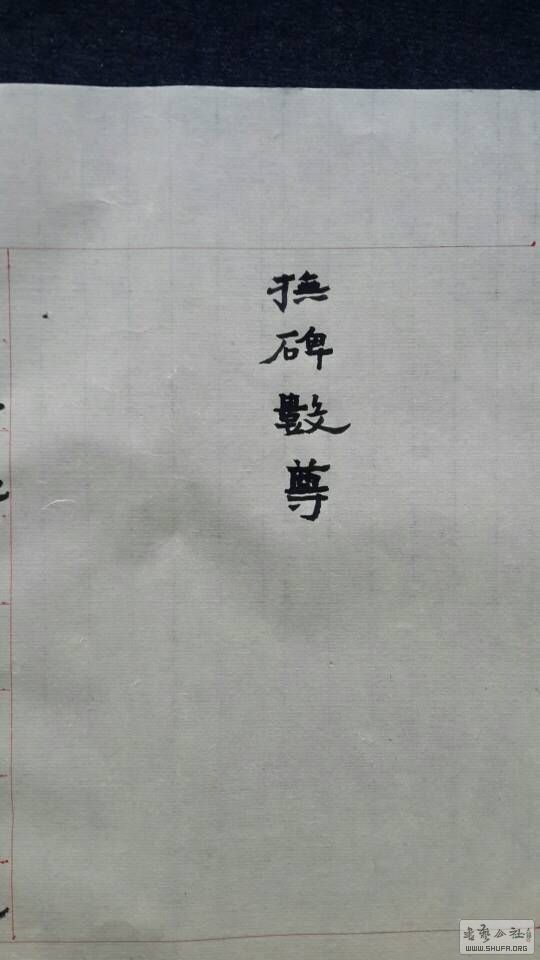 撫碑數尊
书艺公社
WWW.SHUFA.ORG